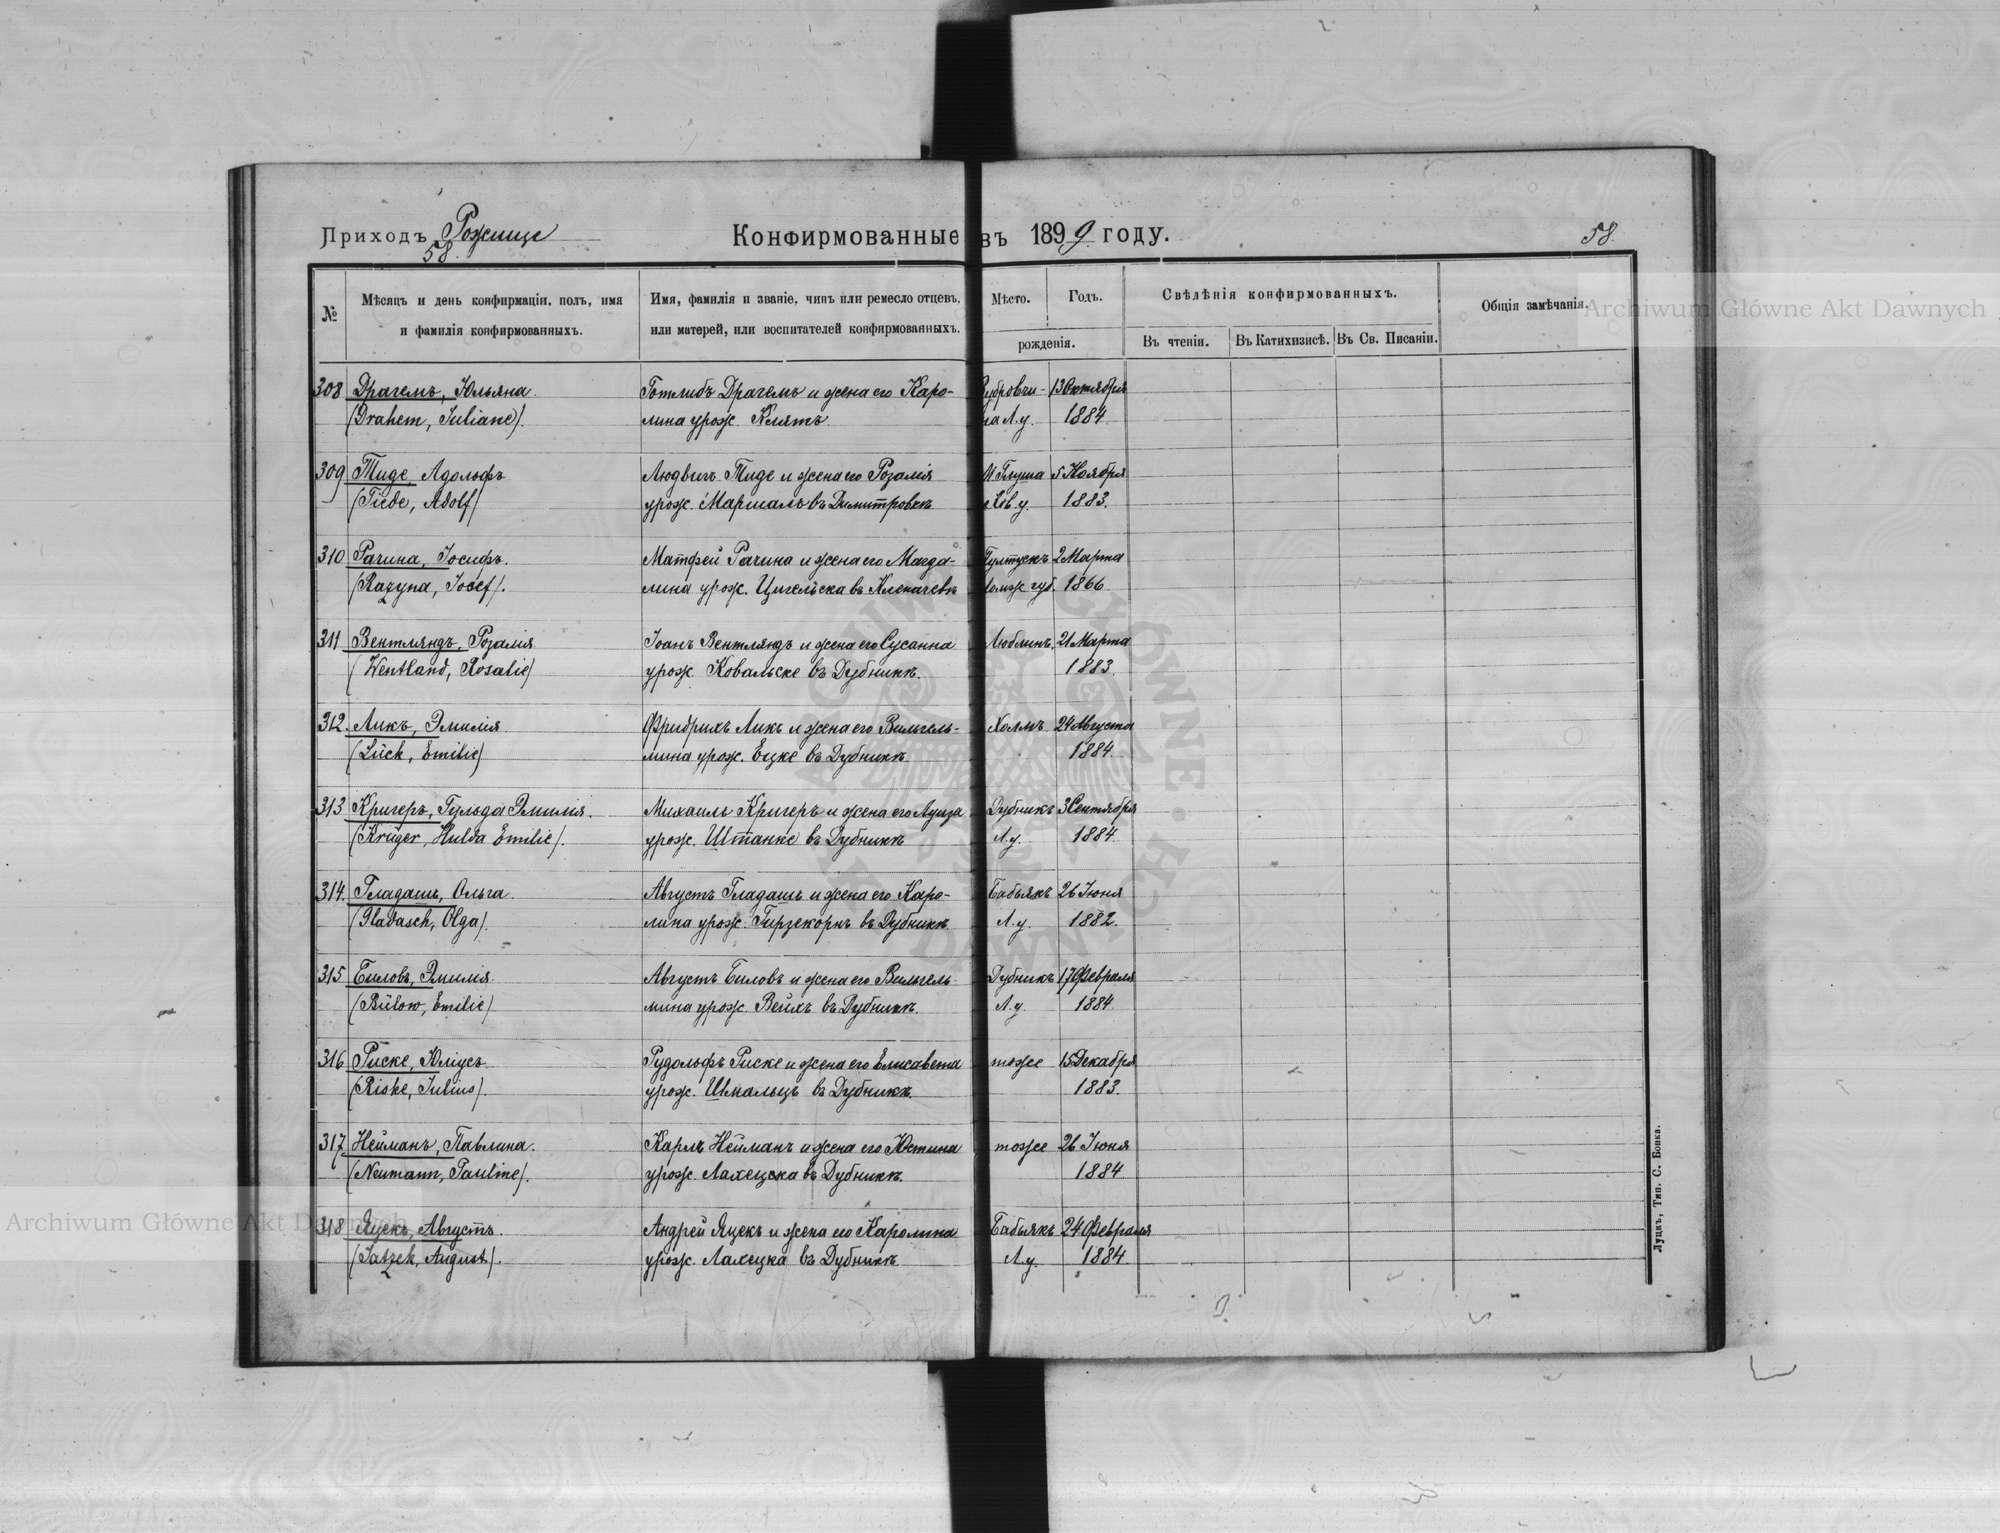 Приходъ Рожище
58.
Конфирмованные въ 1899 году.
58.
№
Мѣсяцъ и день конфирмаціи, полъ, имя
и фамилія конфирмованныхъ.
Имя, фамилія и званіе, чинъ или ремесло отцевъ,
или матерей, или воспитателей конфирмованныхъ.
Мѣсто.
Годъ.
рожденія.
Свѣдѣнія конфирмованныхъ.
Въ чтеніи.
Въ Катихизисѣ.
Въ Св. Писаніи.
Общія замѣчанія.
308 Драгемъ, Юльяна. Готлибъ Драгемъ и жена его Каро- 13 Октября
(Drahem, Juliane). лина урож. Клятъ. на Л.у. 1884.
309 Тиде, Адольфъ Людвигъ Тиде и жена его Розалія 5 Ноября
(Tiede, Adolf) урож. Маршаль въ Димитровкѣ у. 1883.
310 Рачина, Іосифъ. Матфей Рачина и жена его Магда- Пултускъ 2 Марта
(Razyna, Josef). лина урож. Цигельска въ губ. 1866.
311 Вентляндъ, Розалія Іоанъ Вентляндъ и жена его Сусанна Люблинъ. 21 Марта
(Wentland, Rosalie) урож. Ковальске въ Дубникъ. 1883.
312. Ликъ, Эмилія. Фридрихъ Ликъ и жена его Вильгель- Холмъ 24 Августа
(Lück, Emilie) мина урож. Ецке въ Дубникъ. 1884.
313 Кригеръ, Гульда Эмилія. Михаилъ Кригеръ и жена его Луиза Дубникъ 3 Сентября
(Krüger, Hulda Emilie). урож. Штанке въ Дубникъ Л.у. 1884.
314. Гладашъ, Ольга. Августъ Гладашъ и жена его Каро- Бабьякъ 26 Іюня
(Gladasch, Olga). лина урож. Гирзекорнъ въ Дубникъ Л.у. 1882.
315 Биловъ, Эмилія. Августъ Биловъ и жена его Вильгель- Дубникъ 17 Февраля
(Bülow, Emilie) мина урож. Вейхъ въ Дубникъ. Л.у. 1884.
316 Риске, Юліусъ. Рудольфъ Риске и жена его Елисавета тоже 15 Декабря
(Riske, Julius). урож. Шмальцъ въ Дубникъ. 1883.
317 Нейманъ, Павлина. Карлъ Нейманъ и жена его Юстина тоже 26 Іюня
(Neumann, Pauline). урож. Лахецска въ Дубникъ. 1884.
318 Яцекъ, Августъ. Андрей Яцекъ и жена его Каролина Бабьякъ 24 Февраля
(Jatzek, August). урож. Лахецка въ Дубникъ. Л.у. 1884.
Луцкъ, Тип. С. Бонка.
Archiwum Główne Akt Dawnych
Archiwum Główne Akt Dawnych